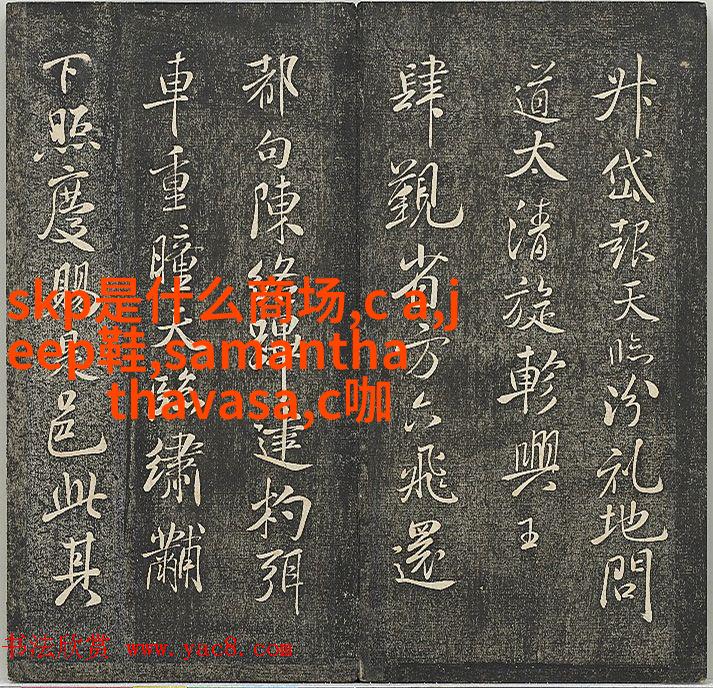 升岱報天臨汾礼地問
道太清旋軫興王
肆覲省方六飛還
都句陳蹕建杓弭
車重瞳天臨繡黼
下照慶賜是邑此其
skp是什么商场,c a,j
eep鞋,samantha
thavasa,c咖
书法欣赏 www.yac8.com